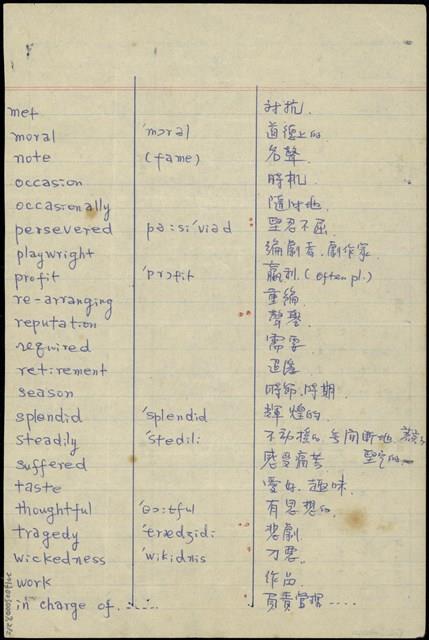 met 对抗.
moral 'mɔrəl 道德上的
note (fame) 名聲.
occasion 時机.
occasionally 隨時地.
persevered pə:si'viəd 堅忍不屈.
playwright 編劇者. 劇作家.
profit 'prɔfit 贏利. (often pl.)
re-arranging 重編.
reputation 聲譽.
required 需要
retirement 退隱
season 時節. 時期.
splendid 'splendid 輝煌的.
steadily 'stedili 不動搖的. 無間斷地.
suffered 感受痛苦. 堅定的
taste 愛好. 趣味.
thoughtful 'θɔ:tful 有思想的
tragedy 'trædʒidi 悲劇.
wickedness 'wikidnis 刁惡.
work 作品.
in charge of...... 負責管理....